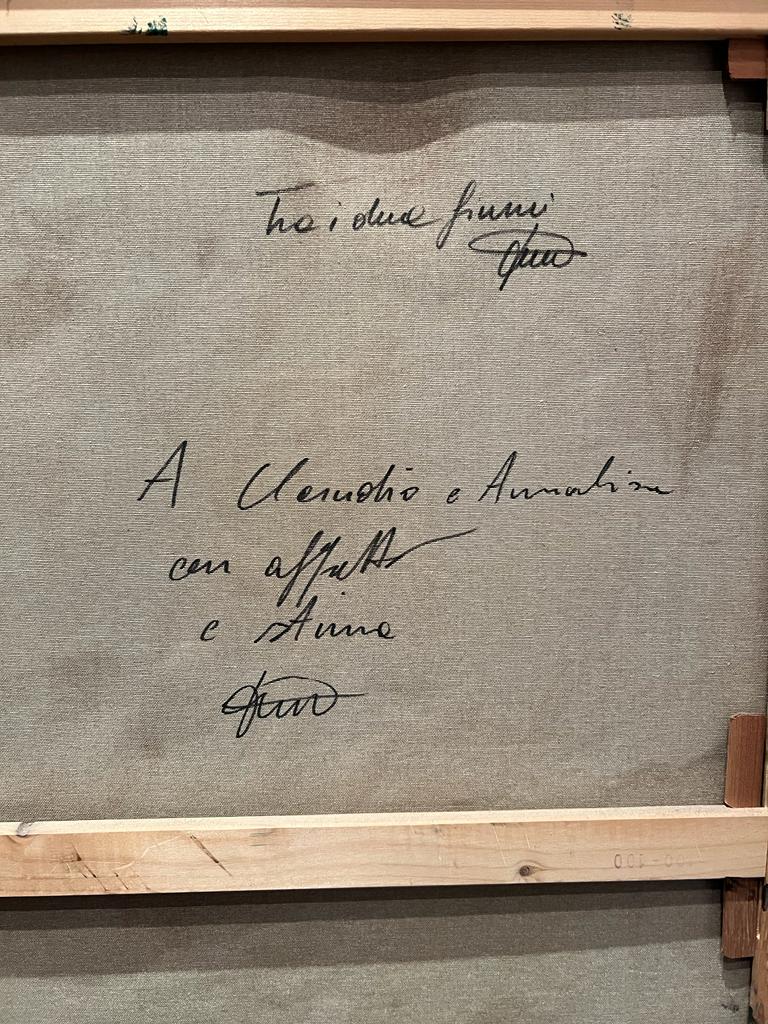 Tra i due fiumi
A Claudio e Annalisa
con affetto
e stima